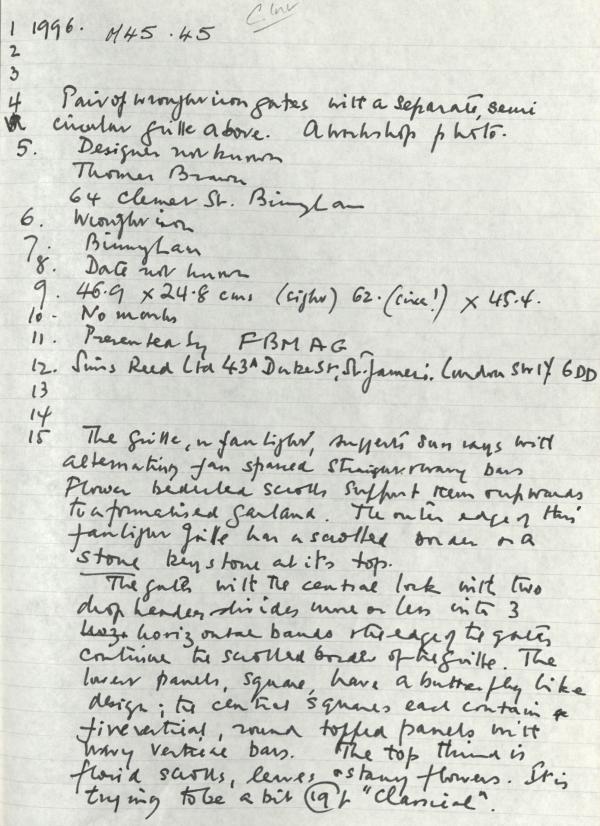 1 1996. M45.45
2
3
4 Pair of wrought iron gates with a separate, semi
circular grille above. A workshop photo.
5. Designer not known
Thomas Brawn
64 Clement St. Birmingham
6. Wrought iron
7. Birmingham
8. Date not known
9. 46.9 x 24.8 cms (sight) 62. (circa!) x 45.4.
10. No marks
11. Presented by FBMAG
12. Sims Reed Ltd 43A Duke St, St. James's. London SW1Y 6DD
13
14
15 The grille, or fan light, suggests sun rays with
alternating fan spaced straight & wavy bars
Flower headed scrolls support them outwards
to a formalised garland. The outer edge of this
fanlight grille has a scrolled border on a
stone keystone at its top.
The gates with the central lock with two
drop handles divides more or less into 3
horizontal bands & the edge of the gates
continue the scrolled border of the grille. The
lower panels, square, have a butterfly like
design; the central squares each contain
five vertical, round topped panels with
wavy vertical bars. The top third is
florid scrolls, leaves & starry flowers. It is
trying to be a bit "Classical".